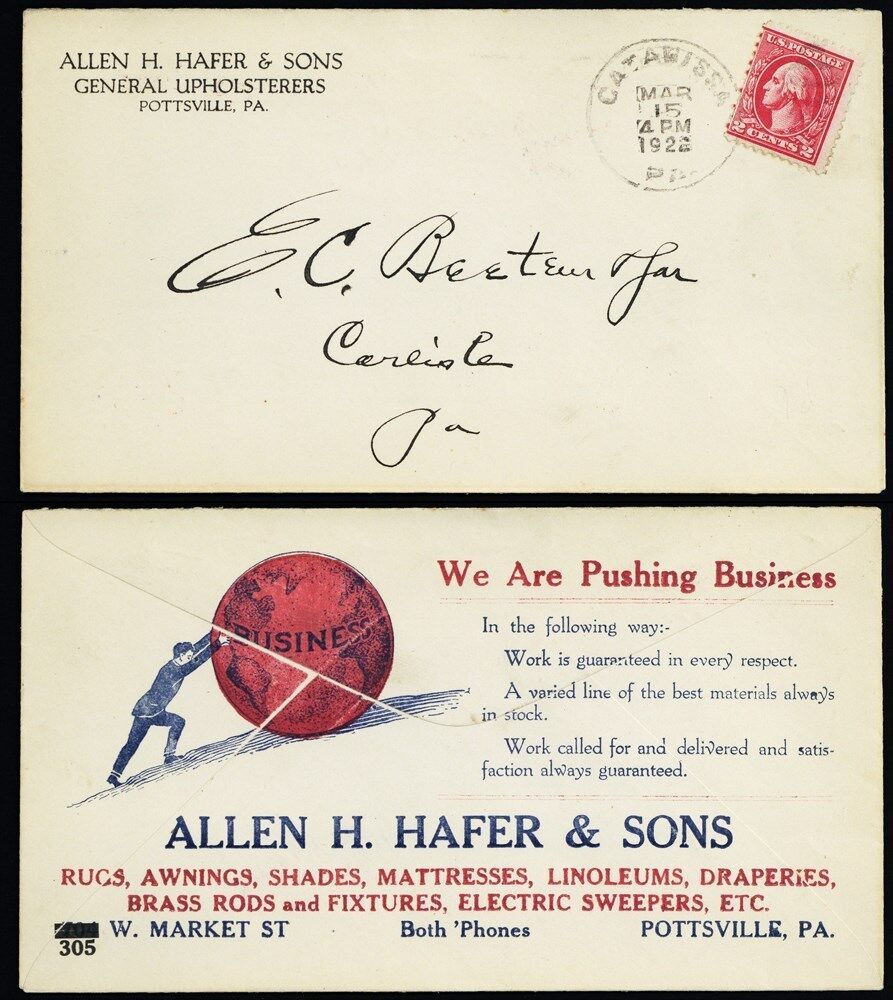 ALLEN H. HAFER & SONS
GENERAL UPHOLSTERERS
POTTSVILLE, PA.
CATAWISSA
MAR
15
4 PM
1922
PA.
U.S. POSTAGE
2 CENTS 2
E. C. Beeteur
Carlisle
Pa
BUSINESS
We Are Pushing Business
In the following way:-
Work is guaranteed in every respect.
A varied line of the best materials always
in stock.
Work called for and delivered and satis-
faction always guaranteed.
ALLEN H. HAFER & SONS
RUGS, AWNINGS, SHADES, MATTRESSES, LINOLEUMS, DRAPERIES,
BRASS RODS and FIXTURES, ELECTRIC SWEEPERS, ETC.
305 W. MARKET ST Both 'Phones POTTSVILLE, PA.